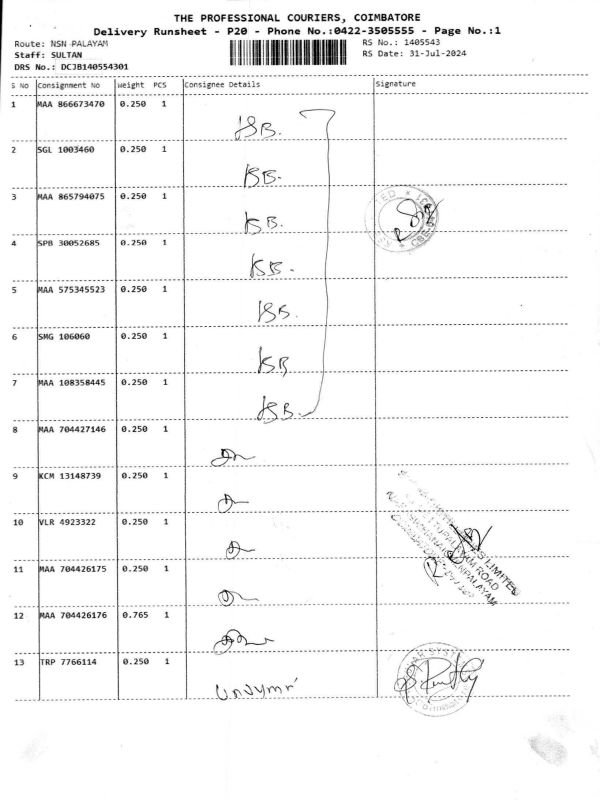 THE PROFESSIONAL COURIERS, COIMBATORE
Delivery Runsheet - P20 - Phone No.:0422-3505555 - Page No.:1
Route: NSN PALAYAM RS No.: 1405543
Staff: SULTAN RS Date: 31-Jul-2024
DRS No.: DCJB140554301
S No Consignment No Weight PCS Consignee Details Signature
1 MAA 866673470 0.250 1
2 SGL 1003460 0.250 1
3 MAA 865794075 0.250 1
4 SPB 30052685 0.250 1
5 MAA 575345523 0.250 1
6 SMG 106060 0.250 1
7 MAA 108358445 0.250 1
8 MAA 704427146 0.250 1
9 KCM 13148739 0.250 1
10 VLR 4923322 0.250 1
LIMITED
ROAD
11 MAA 704426175 0.250 1
12 MAA 704426176 0.765 1
13 TRP 7766114 0.250 1